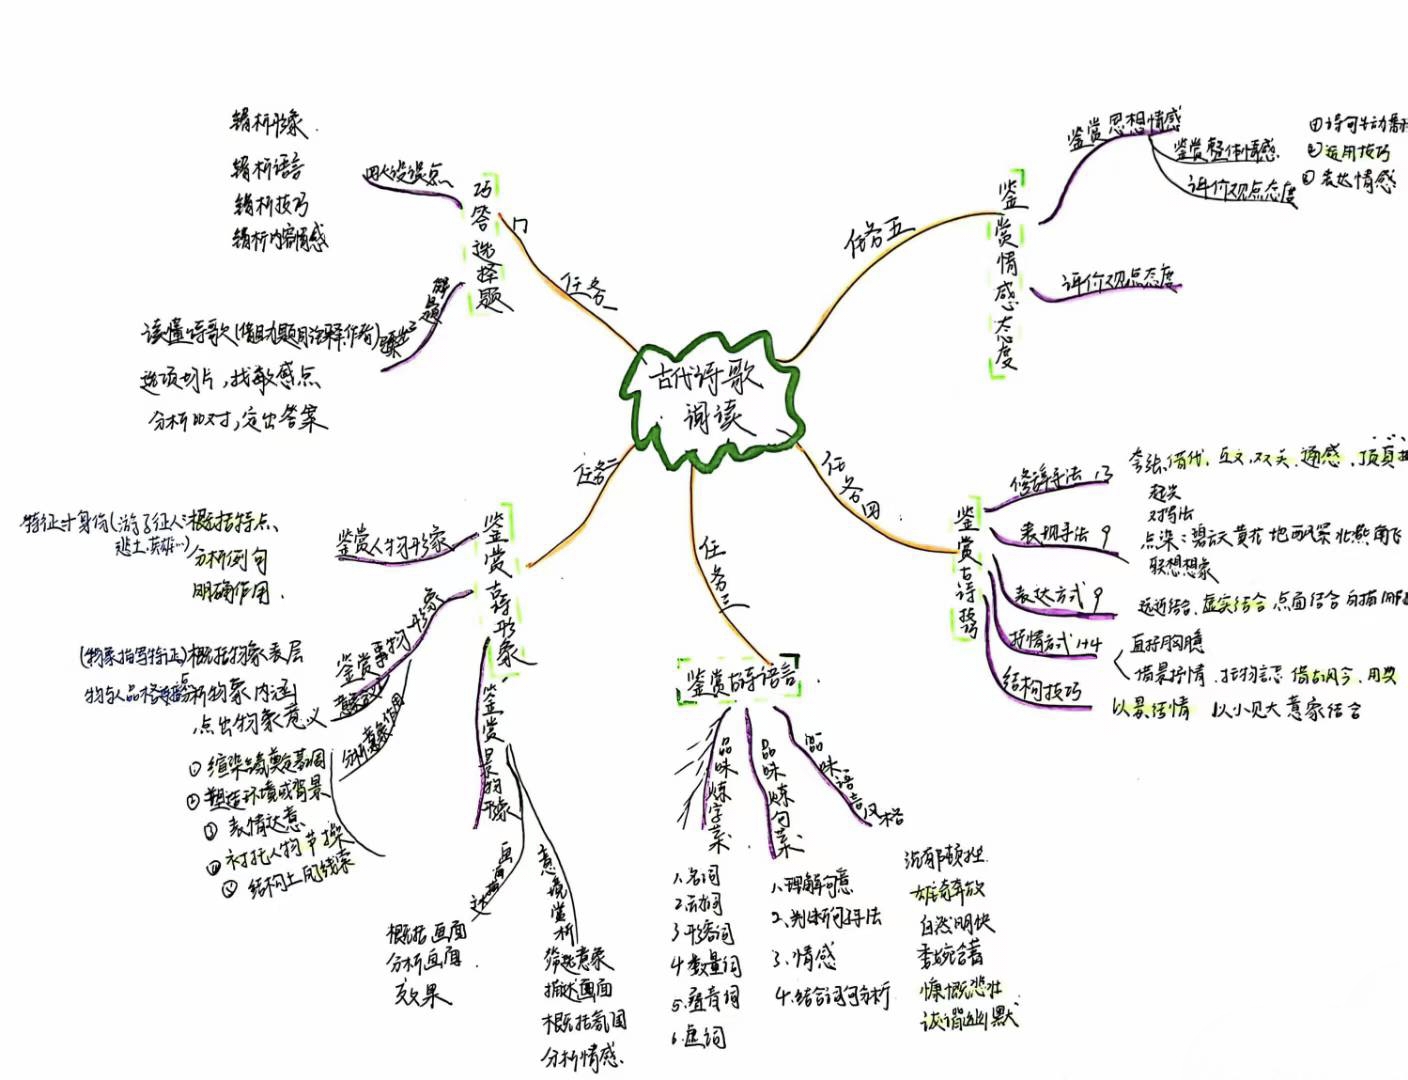 古代诗歌
阅读
任务一
巧答选择题
四个设误点
错析形象
错析语言
错析技巧
错析内容情感
解题
读懂诗歌(借助题目注释作者)
选项切片,找敏感点
分析比对,定出答案
任务二
鉴赏古诗形象
鉴赏人物形象
特征+身份(游子征人
概括特点
分析例句
明确作用
鉴赏事物形象
(物象描写特征)概括物象表层
分析物象内涵
点出物象意义
分析意象作用
① 渲染 奠定基调
② 塑造环境或背景
③ 表情达意
④ 衬托人物节操
⑤ 结构上的线索
鉴赏景物形象
画面
概括画面
分析画面
效果
意境赏析
筛选意象
描述画面
概括氛围
分析情感
任务三
鉴赏古诗语言
品味炼字类
1.名词
2.动词
3.形容词
4.数量词
5.叠音词
6.虚词
品味炼句类
1.理解句意
2.判断句子手法
3.情感
4.结合词句分析
品味语言风格
沉郁顿挫
雄奇奔放
自然明快
委婉含蓄
慷慨悲壮
诙谐幽默
任务四
鉴赏古诗技巧
修辞手法 13
夸张,借代,互文,双关,通感,顶真
起兴
对写法
表现手法 9
点染:碧云天黄花地西风紧北燕南飞
联想想象
表达方式 9
远近结合,虚实结合,点面结合 白描
抒情方式 1+4
直抒胸臆
借景抒情,托物言志 借古讽今,用典
结构技巧
以景结情 以小见大 意象结合
任务五
鉴赏情感态度
鉴赏思想情感
鉴赏整体情感
评价观点态度
② 运用技巧
③ 表达情感
评价观点态度